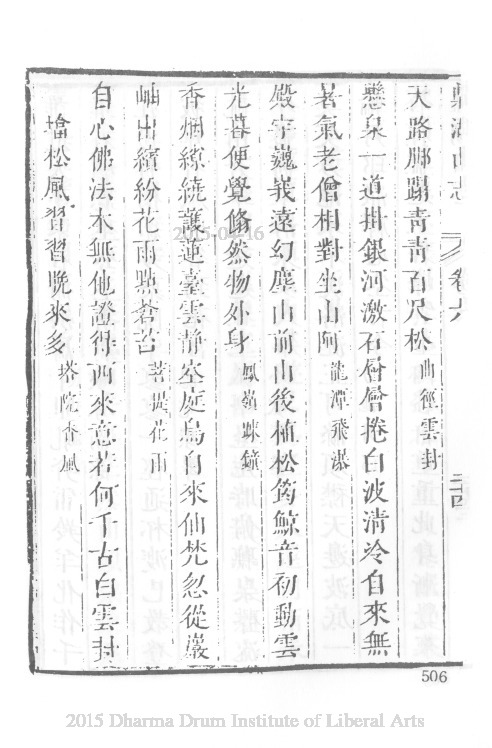 鼎湖山志 卷六 二十四
天路腳躡青青百尺松 曲徑雲封
懸泉一道掛銀河激石層層捲白波清冷自來無
暑氣老僧相對坐山阿 龍潭飛瀑
殿宇巍峩遠幻塵山前山後植松筠鯨音初動雲
光暮便覺翛然物外身 鳳嶺疎鐘
香烟繚繞護蓮臺雲静空庭鳥自來仙梵忽從巖
岫出繽紛花雨點蒼苔 菩提花雨
自心佛法本無他證得西來意若何千古白雲封
塔松風習習晚來多 塔院香風
2015-04-16
506
2015 Dharma Drum Institute of Liberal Arts